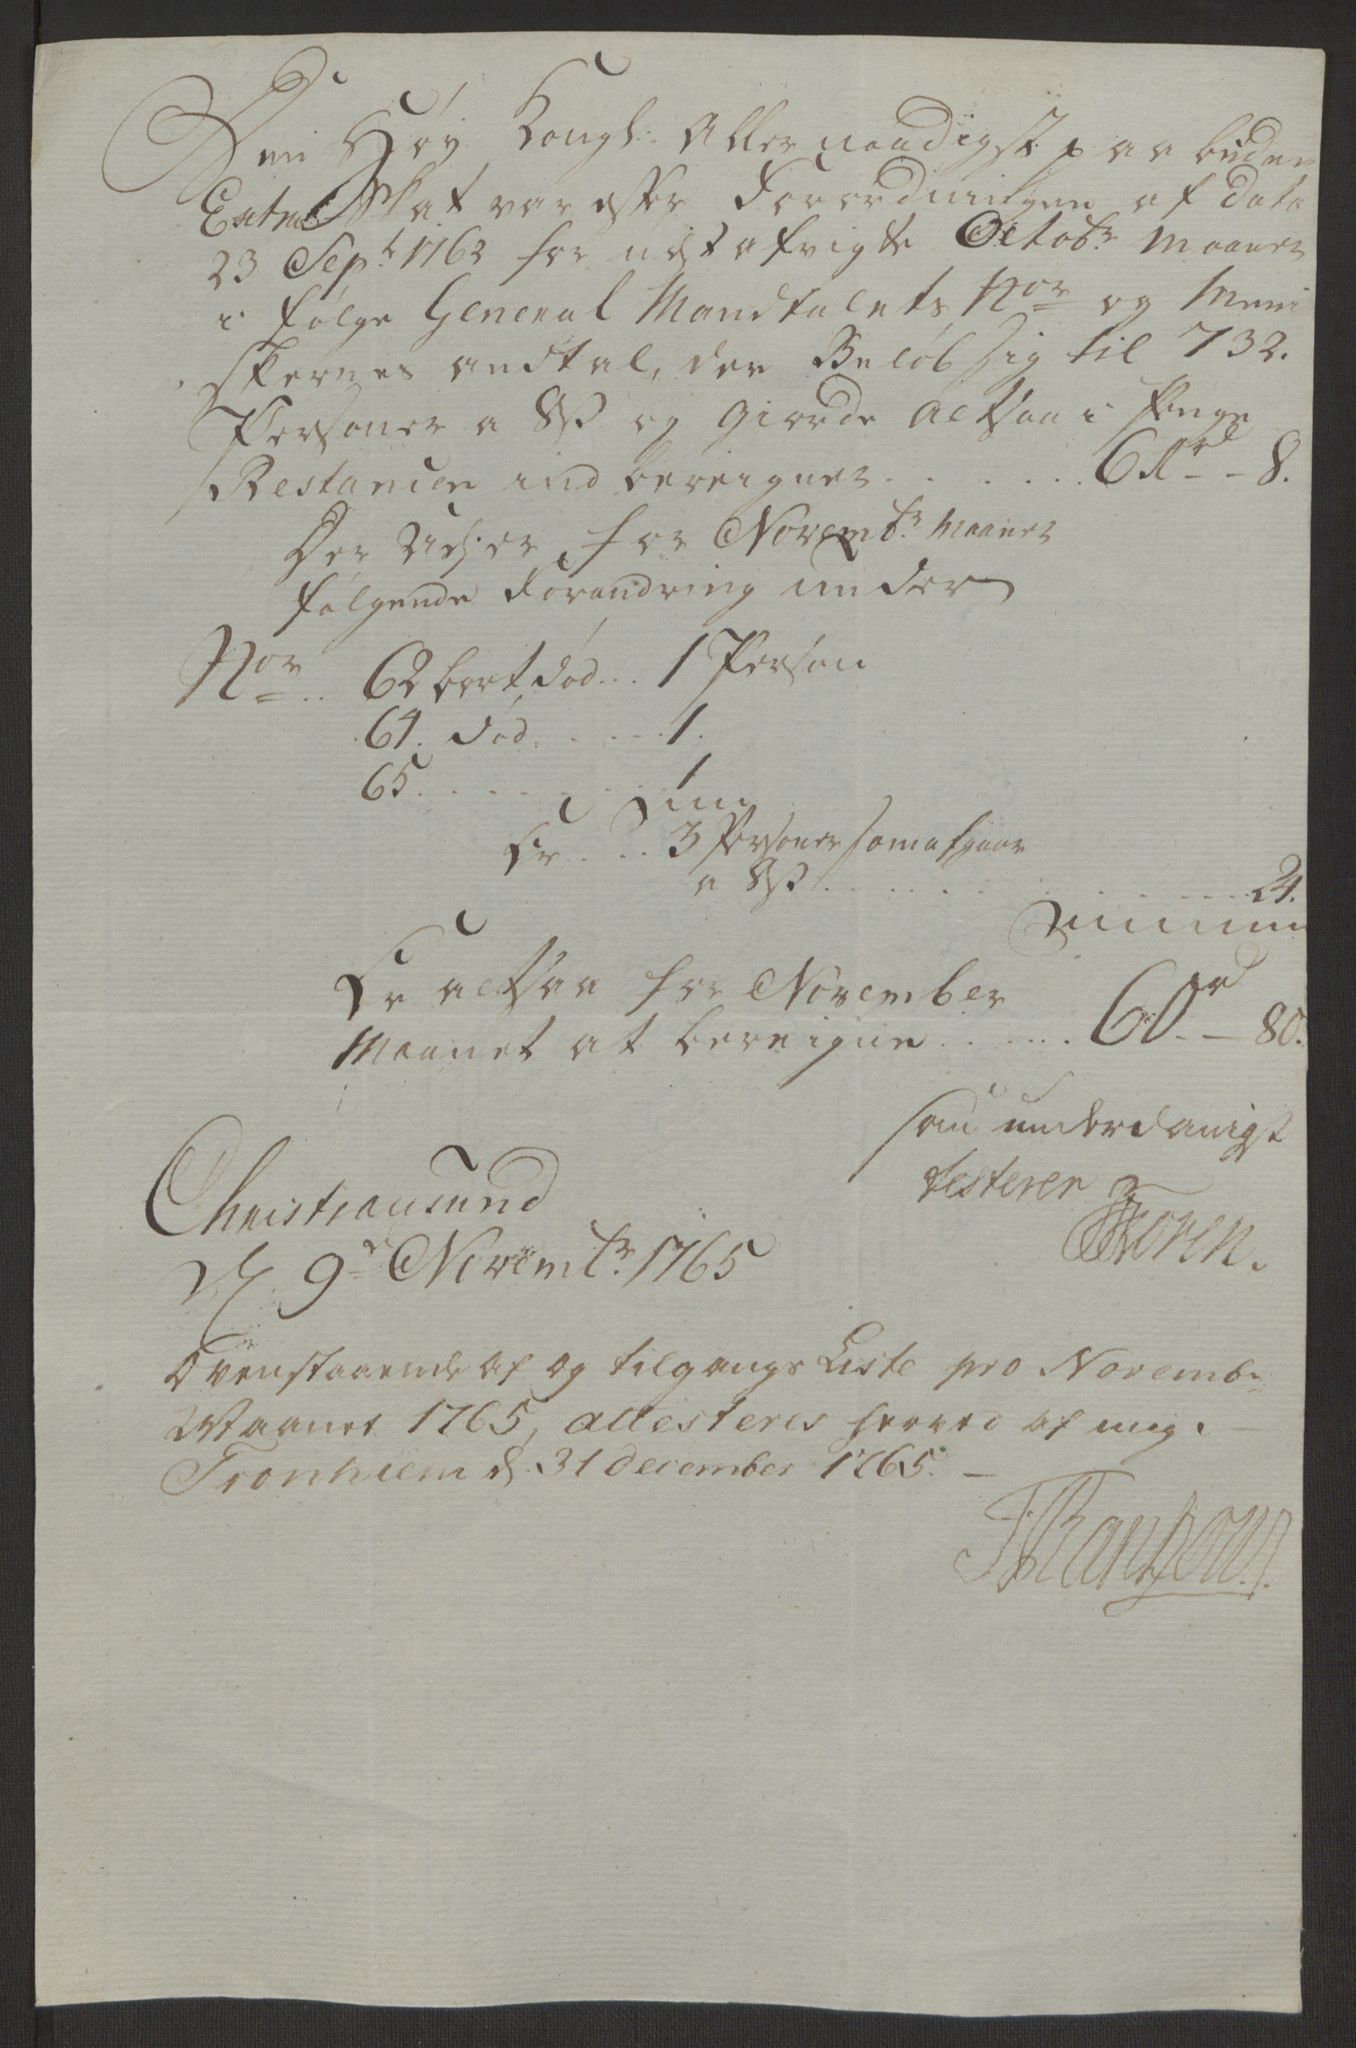 Den Høy Kongl: Allernaadigst paa buden
Extra Skat var efter Forordningen af Dato
23 Sept 1762 for nest afvigte Octobr Maanet
i følge General Mandtalets Nor og Menni
skernes andtal, der Beløb sig til 732.
Personer a 8 s og giorde altsaa i penge
Restancien ind bereignet . . . . . . 61 rd - 8.
Der Udj er for Novembr Maanet
følgende Forandring under
Nor .. 62 bort død ... 1 Person
64. død . . . . . 1.
65. . . . . . . . 1
Er . . . 3 Personer som afgaar
a 8 s . . . . . . . . . . . 24.
Er altsaa for November
Maanet at bereigne . . . . . . 60 rd - 80.
som underdanigst
testerer
Christiansund
d 9de Novembr. 1765
Ovenstaaende af og tilgangs Liste pro Novembr
Maanet 1765, attesteres herved af mig.
Tronhiem d. 31 december 1765. —
FRantzow.